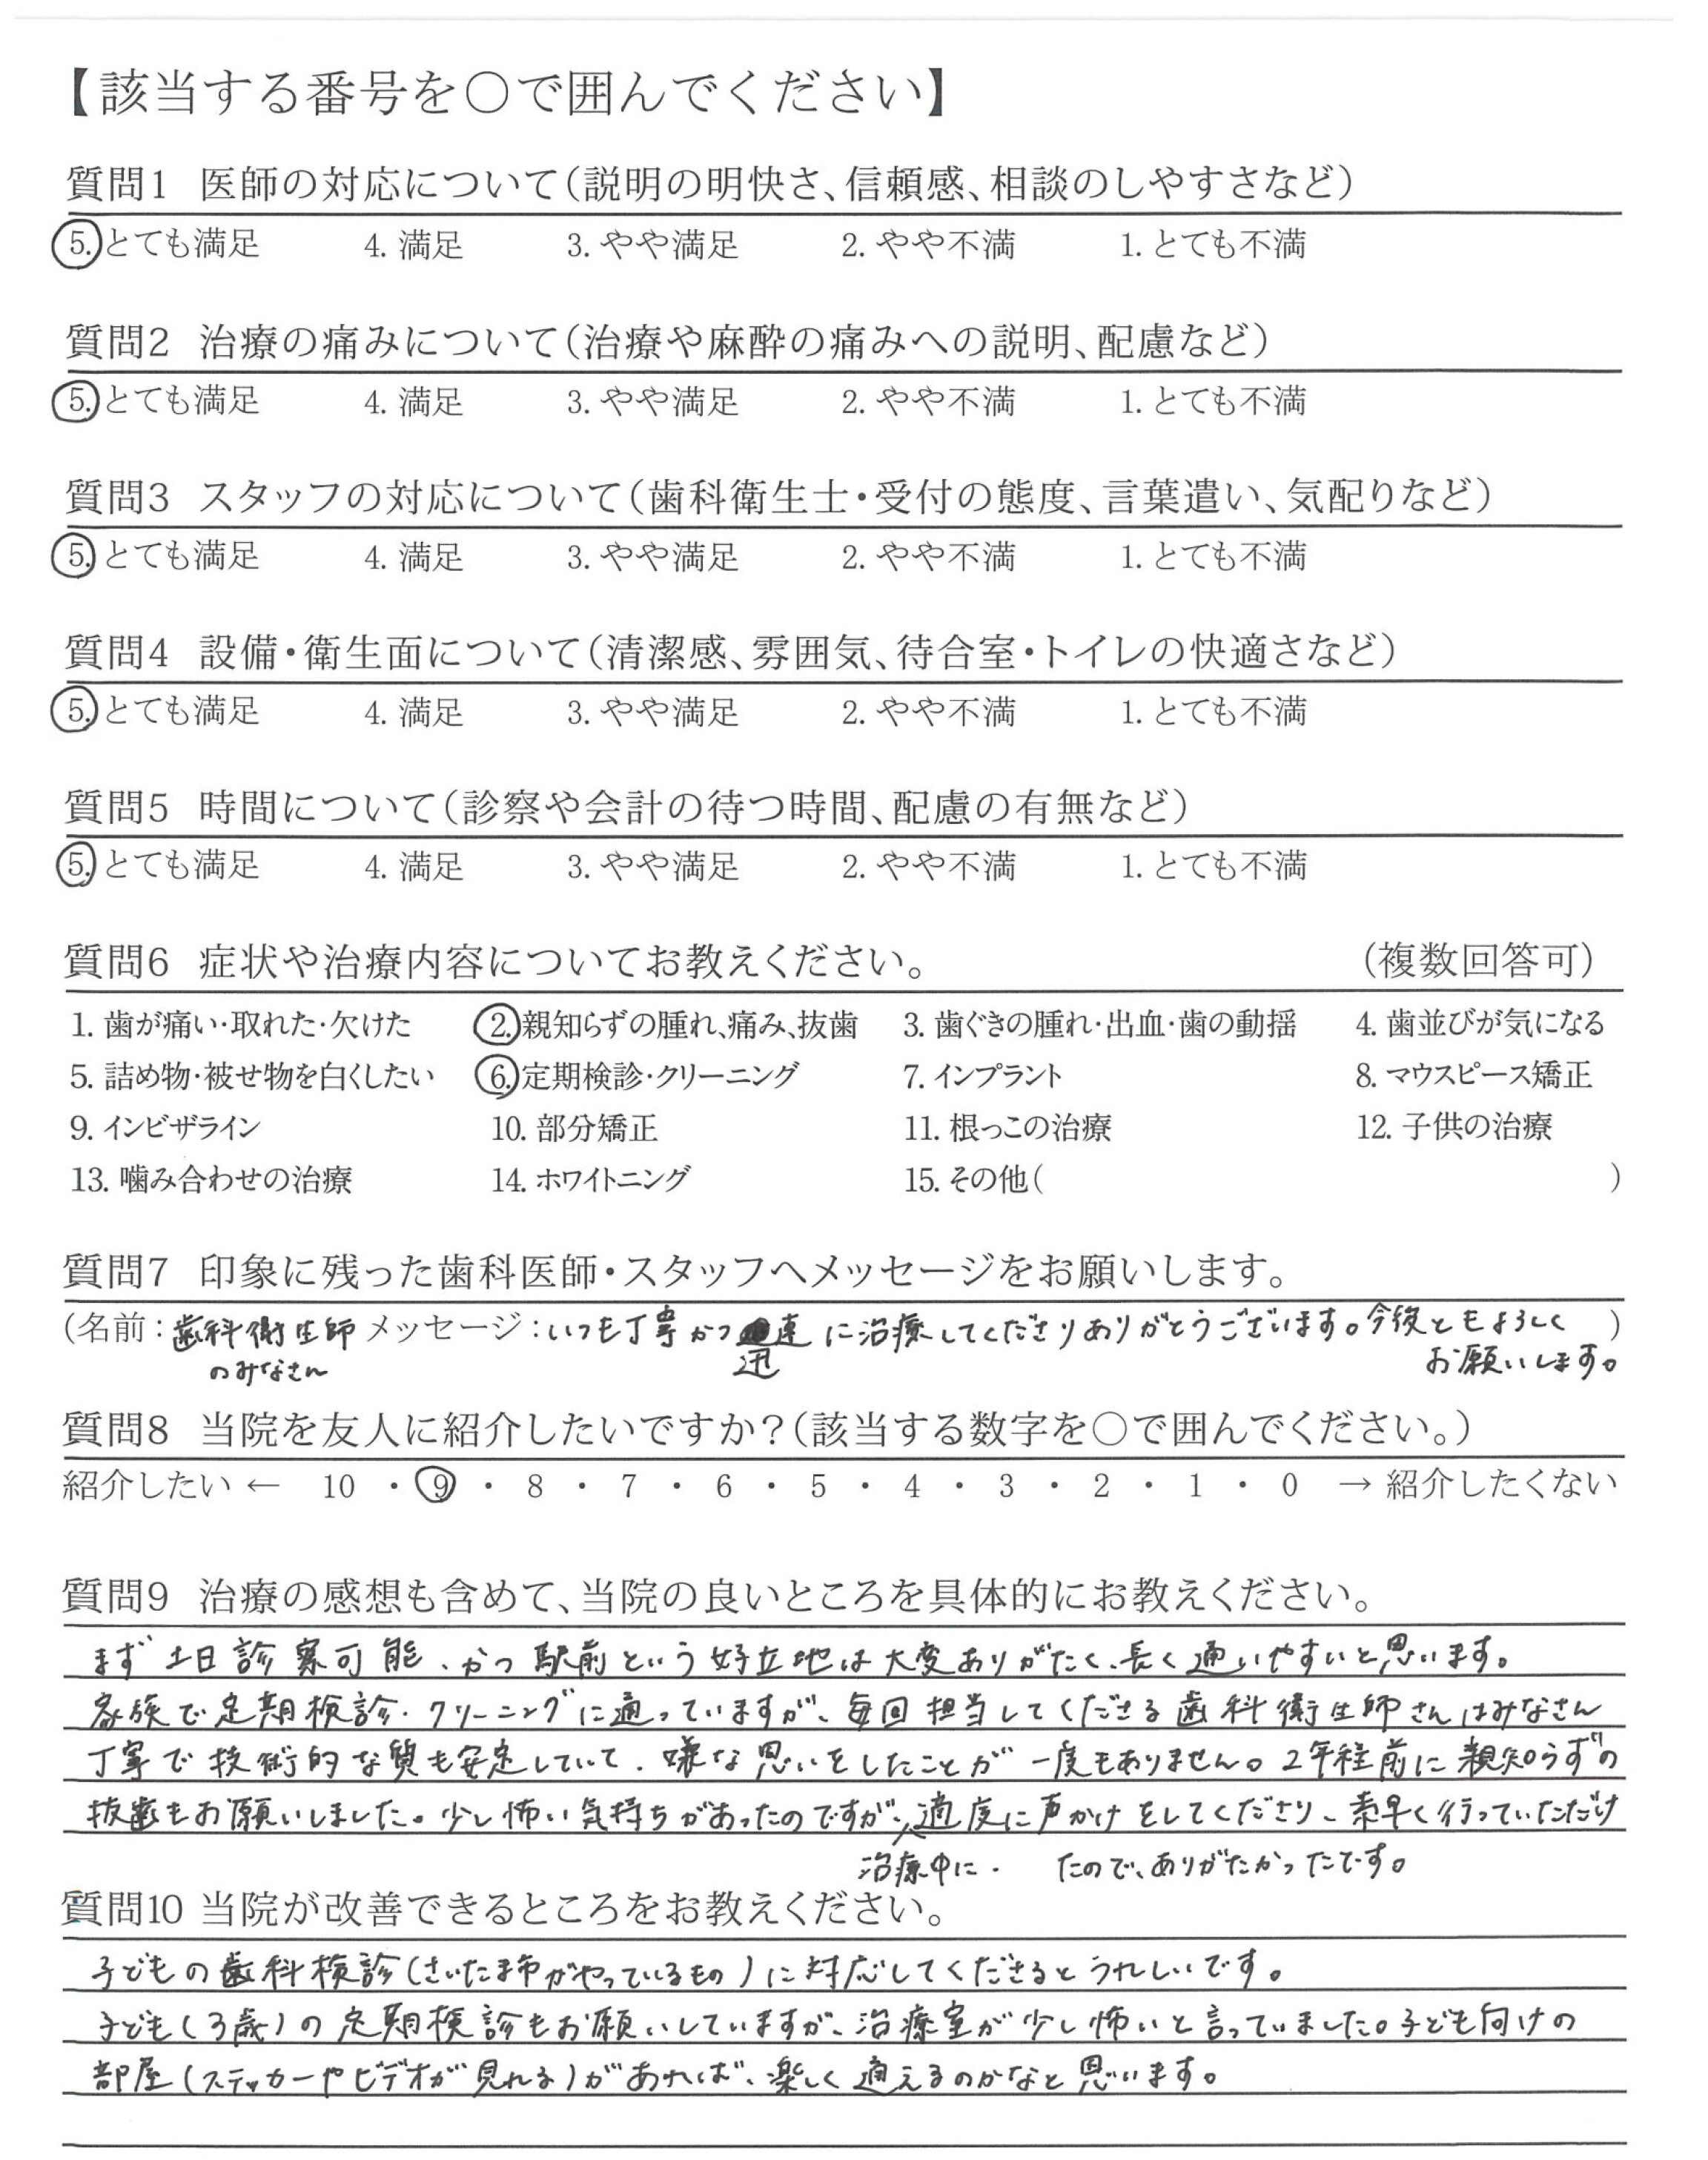 【該当する番号を〇で囲んでください】
質問1 医師の対応について(説明の明快さ、信頼感、相談のしやすさなど)
5. とても満足 4. 満足 3. やや満足 2. やや不満 1. とても不満
質問2 治療の痛みについて(治療や麻酔の痛みへの説明、配慮など)
5. とても満足 4. 満足 3. やや満足 2. やや不満 1. とても不満
質問3 スタッフの対応について(歯科衛生士・受付の態度、言葉遣い、気配りなど)
5. とても満足 4. 満足 3. やや満足 2. やや不満 1. とても不満
質問4 設備・衛生面について(清潔感、雰囲気、待合室・トイレの快適さなど)
5. とても満足 4. 満足 3. やや満足 2. やや不満 1. とても不満
質問5 時間について(診察や会計の待つ時間、配慮の有無など)
5. とても満足 4. 満足 3. やや満足 2. やや不満 1. とても不満
質問6 症状や治療内容についてお教えください。 (複数回答可)
1. 歯が痛い・取れた・欠けた 2. 親知らずの腫れ、痛み、抜歯 3. 歯ぐきの腫れ・出血・歯の動揺 4. 歯並びが気になる
5. 詰め物・被せ物を白くしたい 6. 定期検診・クリーニング 7. インプラント 8. マウスピース矯正
9. インビザライン 10. 部分矯正 11. 根っこの治療 12. 子供の治療
13. 噛み合わせの治療 14. ホワイトニング 15. その他( )
質問7 印象に残った歯科医師・スタッフへメッセージをお願いします。
(名前:歯科衛生師 メッセージ:いつも丁寧かつ迅速に治療してくださりありがとうございます。今後ともよろしく )
のみなさん お願いします。
質問8 当院を友人に紹介したいですか?(該当する数字を〇で囲んでください。)
紹介したい ← 10 ・ 9 ・ 8 ・ 7 ・ 6 ・ 5 ・ 4 ・ 3 ・ 2 ・ 1 ・ 0 → 紹介したくない
質問9 治療の感想も含めて、当院の良いところを具体的にお教えください。
まず土日診察可能、かつ駅前という好立地は大変ありがたく、長く通いやすいと思います。
家族で定期検診・クリーニングに通っていますが、毎回担当してくださる歯科衛生師さんはみなさん
丁寧で技術的な質も安定していて、嫌な思いをしたことが一度もありません。2年程前に親知らずの
抜歯もお願いしました。少し怖い気持ちがあったのですが、適度に声かけをしてくださり、素早く行っていただけ
治療中に、 たので、ありがたかったです。
質問10 当院が改善できるところをお教えください。
子どもの歯科検診(さいたま市がやっているもの)に対応してくださるとうれしいです。
子ども(3歳)の定期検診もお願いしていますが、治療室が少し怖いと言っていました。子ども向けの
部屋(ステッカーやビデオが見れる)があれば、楽しく通えるのかなと思います。